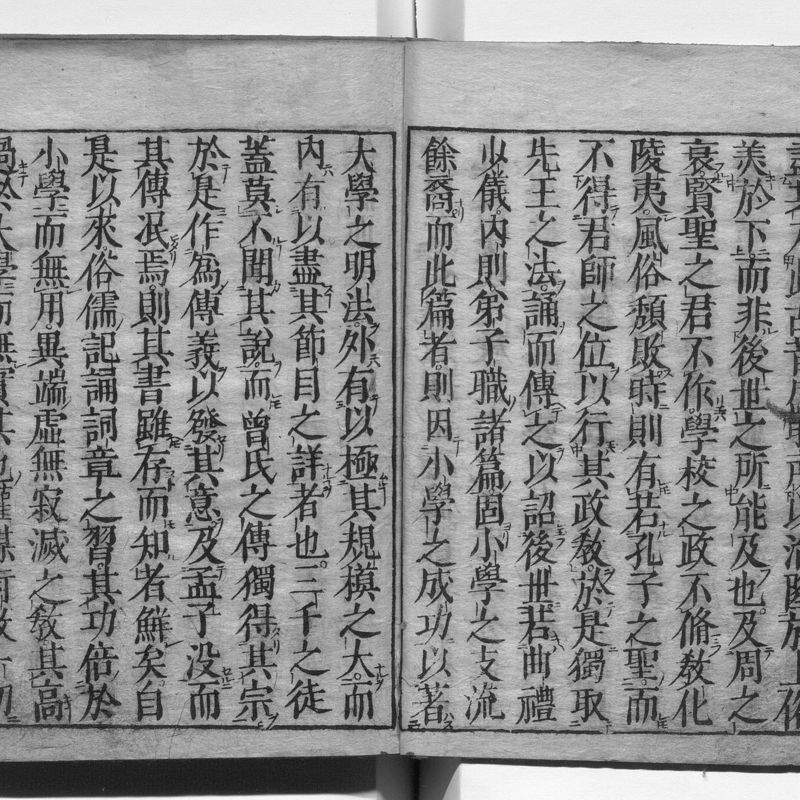 此古昔盛時所以治隆於上俗
美於下而非後世之所能及也及周之
衰賢聖之君不作學校之政不脩敎化
陵夷風俗頽敗時則有若孔子之聖而
不得君師之位以行其政敎於是獨取
先王之法誦而傳之以詔後世若曲禮
少儀內則弟子職諸篇固小學之支流
餘裔而此篇者則因小學之成功以著
大學之明法外有以極其規模之大而
內有以盡其節目之詳者也三千之徒
蓋莫不聞其說而曾氏之傳獨得其宗
於是作爲傳義以發其意及孟子没而
其傳泯焉則其書雖存而知者鮮矣自
是以來俗儒記誦詞章之習其功倍於
小學而無用異端虛無寂滅之敎其高
過於大學而無實其他